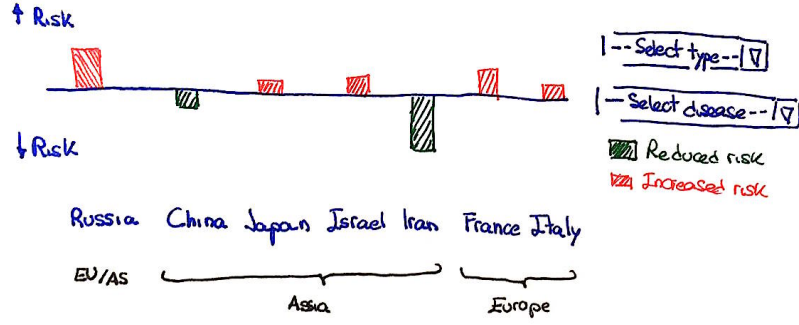 ↑ Risk
|--Select type--|▽
|--Select disease--|▽
↓ Risk
Reduced risk
Increased risk
Russia China Japan Israel Iran France Italy
EU/AS
Assia Europe